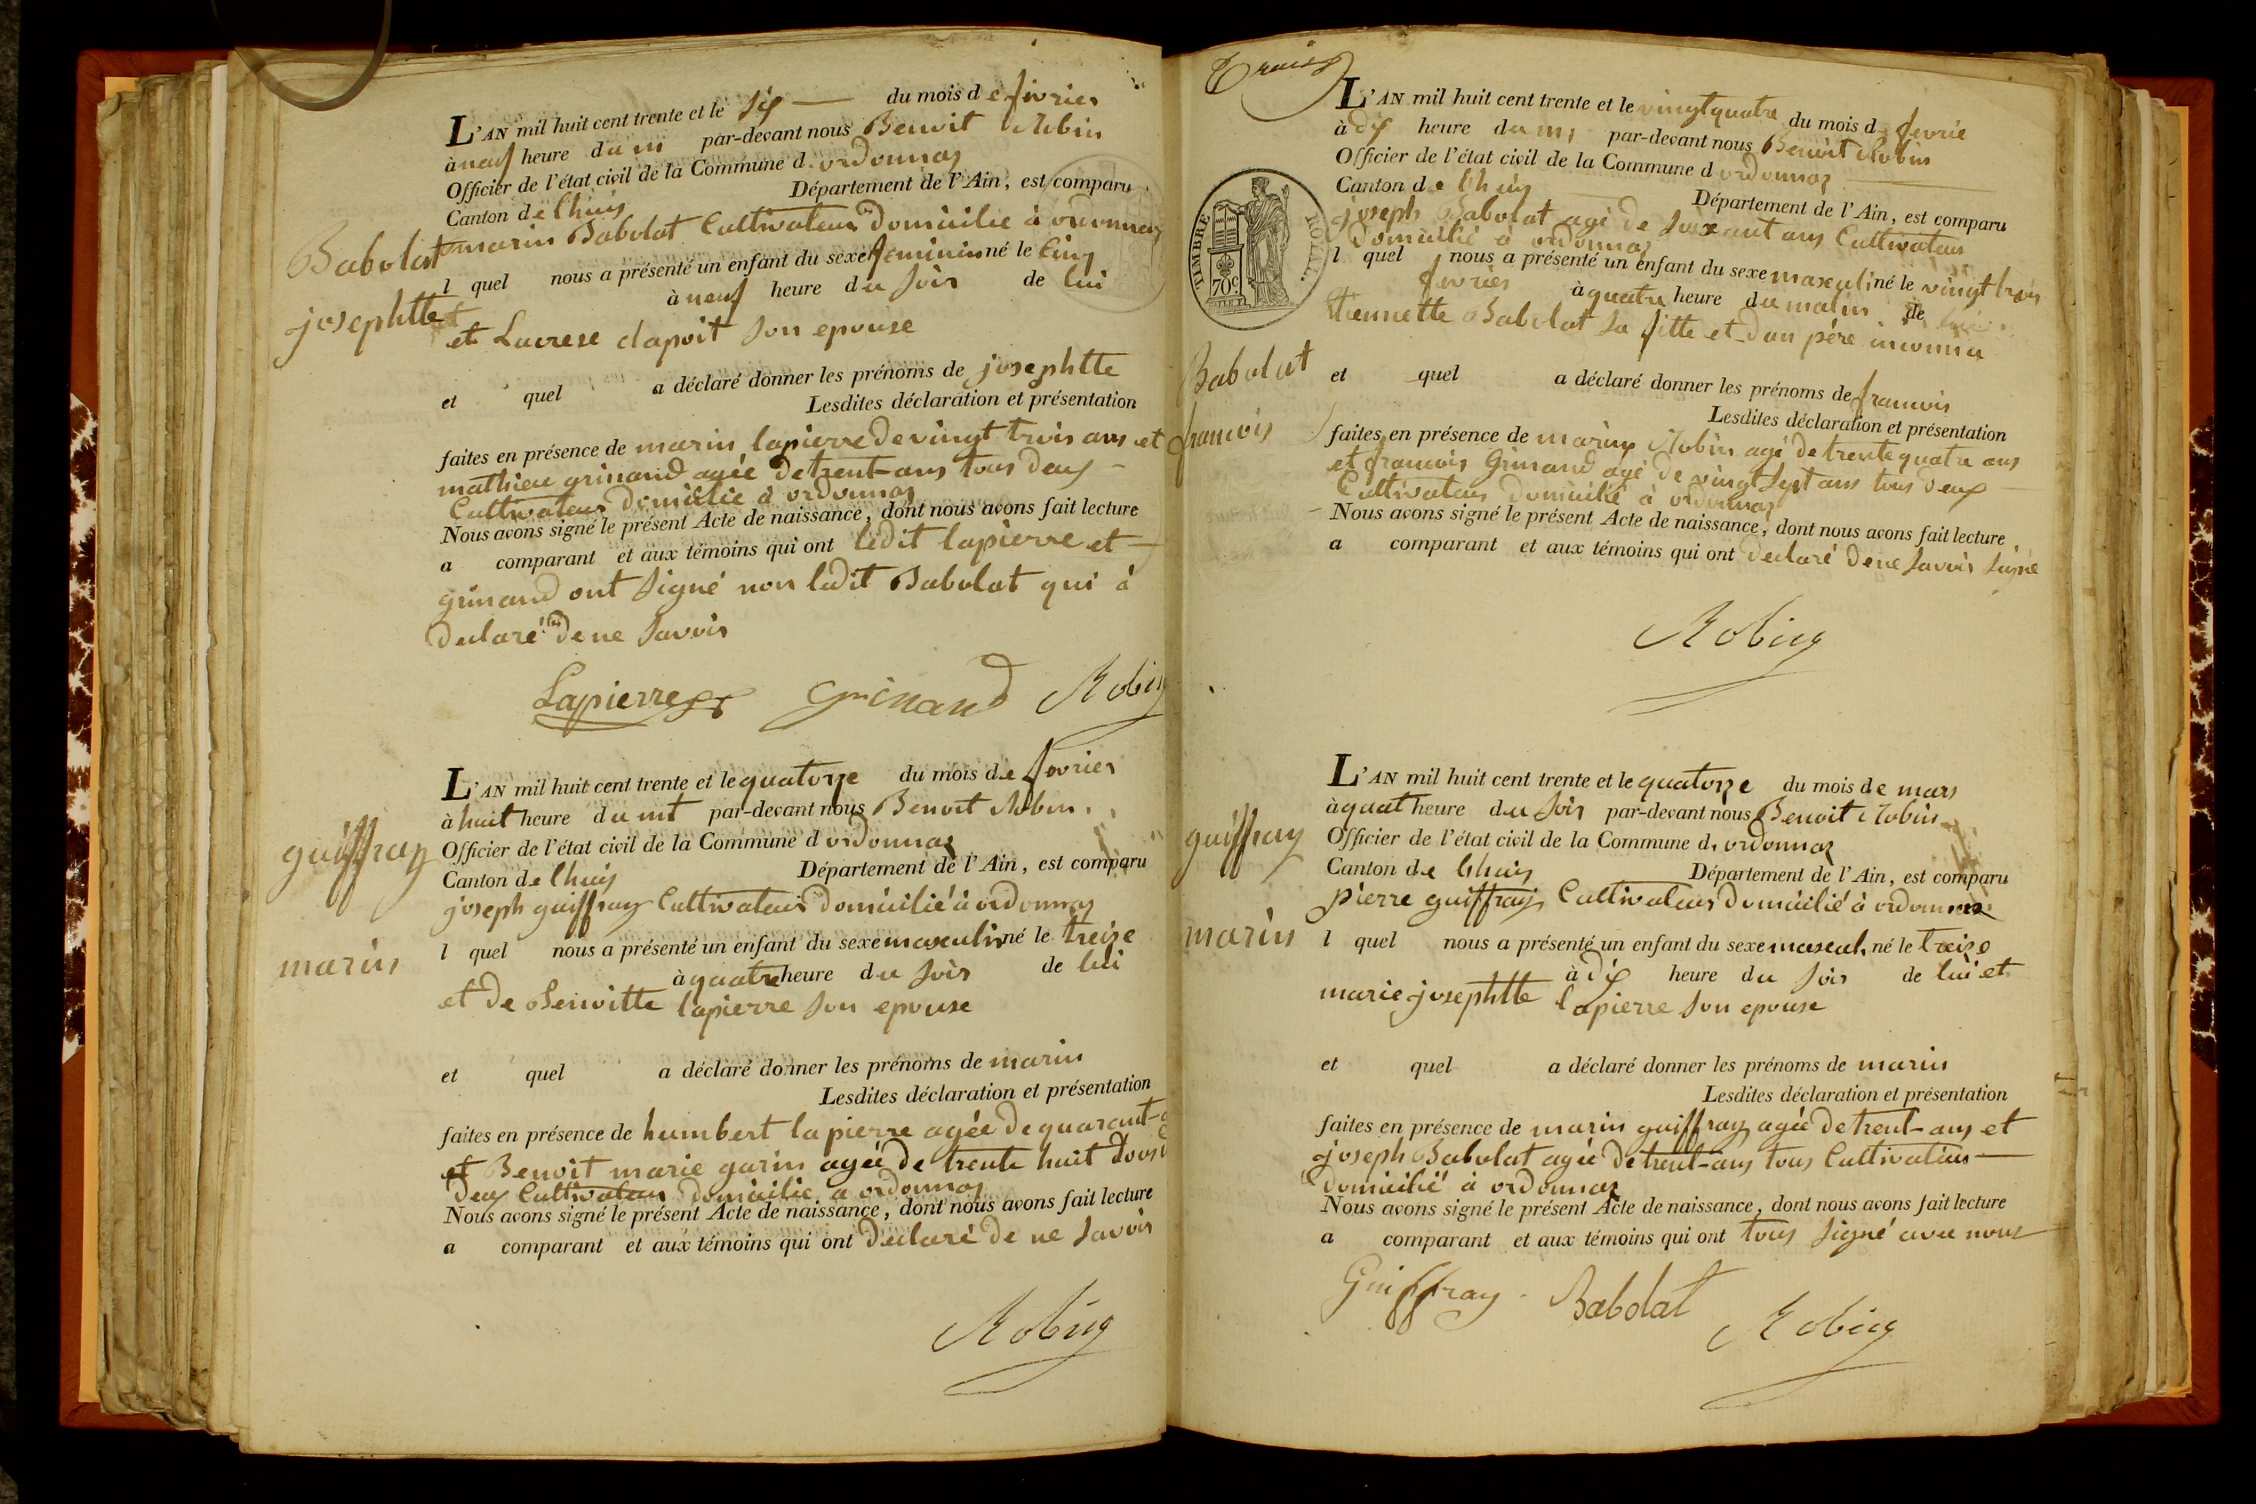 L'AN mil huit cent trente et le six du mois de fevrier
à neuf heure du m par-devant nous Benoit Robin
Officier de l'état civil de la Commune d ordonnaz
Canton de lhuis Département de l'Ain, est comparu
marin Babolat Cultivateur domicilié à ordonnaz
Babolat
l quel nous a présenté un enfant du sexe feminin né le cinq
à neuf heure du soir de lui
josephtte
et Lucrese clapoit son epouse
et quel a déclaré donner les prénoms de josephtte
Lesdites déclaration et présentation
faites en présence de marin lapierre de vingt trois ans et
mathieu grinand agée de trent ans tous deux
Cultivateur domicilié à ordonnaz
Nous avons signé le présent Acte de naissance, dont nous avons fait lecture
a comparant et aux témoins qui ont ledit lapierre et
grinand ont signé non ledit Babolat qui à
declaré de ne savoir
Lapierre Grinand Robin
L'AN mil huit cent trente et le quatorze du mois de fevrier
à huit heure du mt par-devant nous Benoit Robin
guiffray
Officier de l'état civil de la Commune d ordonnaz
Canton de lhuis Département de l'Ain, est comparu
joseph guiffray Cultivateur domicilié à ordonnaz
marin
l quel nous a présenté un enfant du sexe masculin né le treize
à quatre heure du soir de lui
et de Benoitte lapierre son epouse
et quel a déclaré donner les prénoms de marin
Lesdites déclaration et présentation
faites en présence de humbert lapierre agée de quarant
et Benoit marie garin agée de trente huit
deux Cultivateur domicilié a ordonnaz
Nous avons signé le présent Acte de naissance, dont nous avons fait lecture
a comparant et aux témoins qui ont declaré de ne savoir
Robin
Trois
L'AN mil huit cent trente et le vingt quatre du mois d fevrie
à dix heure du m par-devant nous Benoit Robin
Officier de l'état civil de la Commune d ordonnaz
Canton de lhuis Département de l'Ain, est comparu
TIMBRE ROYAL
70c.
joseph Babolat agé de soixant ans Cultivateur
domicilié à ordonnaz
l quel nous a présenté un enfant du sexe masculin né le vingt trois
fevrier à quatre heure du matin de
Etiennette Babolat sa fille et dun père inconnu
Babolat
et quel a déclaré donner les prénoms de francois
Lesdites déclaration et présentation
francois
faites en présence de marin Robin agé de trente quatre ans
et francois Grinand agé de vingt sept ans tous deux
Cultivateur domicilié à ordonnaz
Nous avons signé le présent Acte de naissance, dont nous avons fait lecture
a comparant et aux témoins qui ont declaré de ne savoir signé
Robin
L'AN mil huit cent trente et le quatorze du mois de mars
à quat heure du soir par-devant nous Benoit Robin
guiffray
Officier de l'état civil de la Commune d ordonnaz
Canton de lhuis Département de l'Ain, est comparu
pierre guiffray Cultivateur domicilié à ordonnaz
marin
l quel nous a présenté un enfant du sexe mascul né le treize
à dix heure du soir de lui et
marie josephtte lapierre son epouse
et quel a déclaré donner les prénoms de marin
Lesdites déclaration et présentation
faites en présence de marin guiffray agée de trent ans et
joseph Babolat agée de trent ans tous Cultivateur
domicilié à ordonnaz
Nous avons signé le présent Acte de naissance, dont nous avons fait lecture
a comparant et aux témoins qui ont tous signé avec nous
Guiffray Babolat Robin